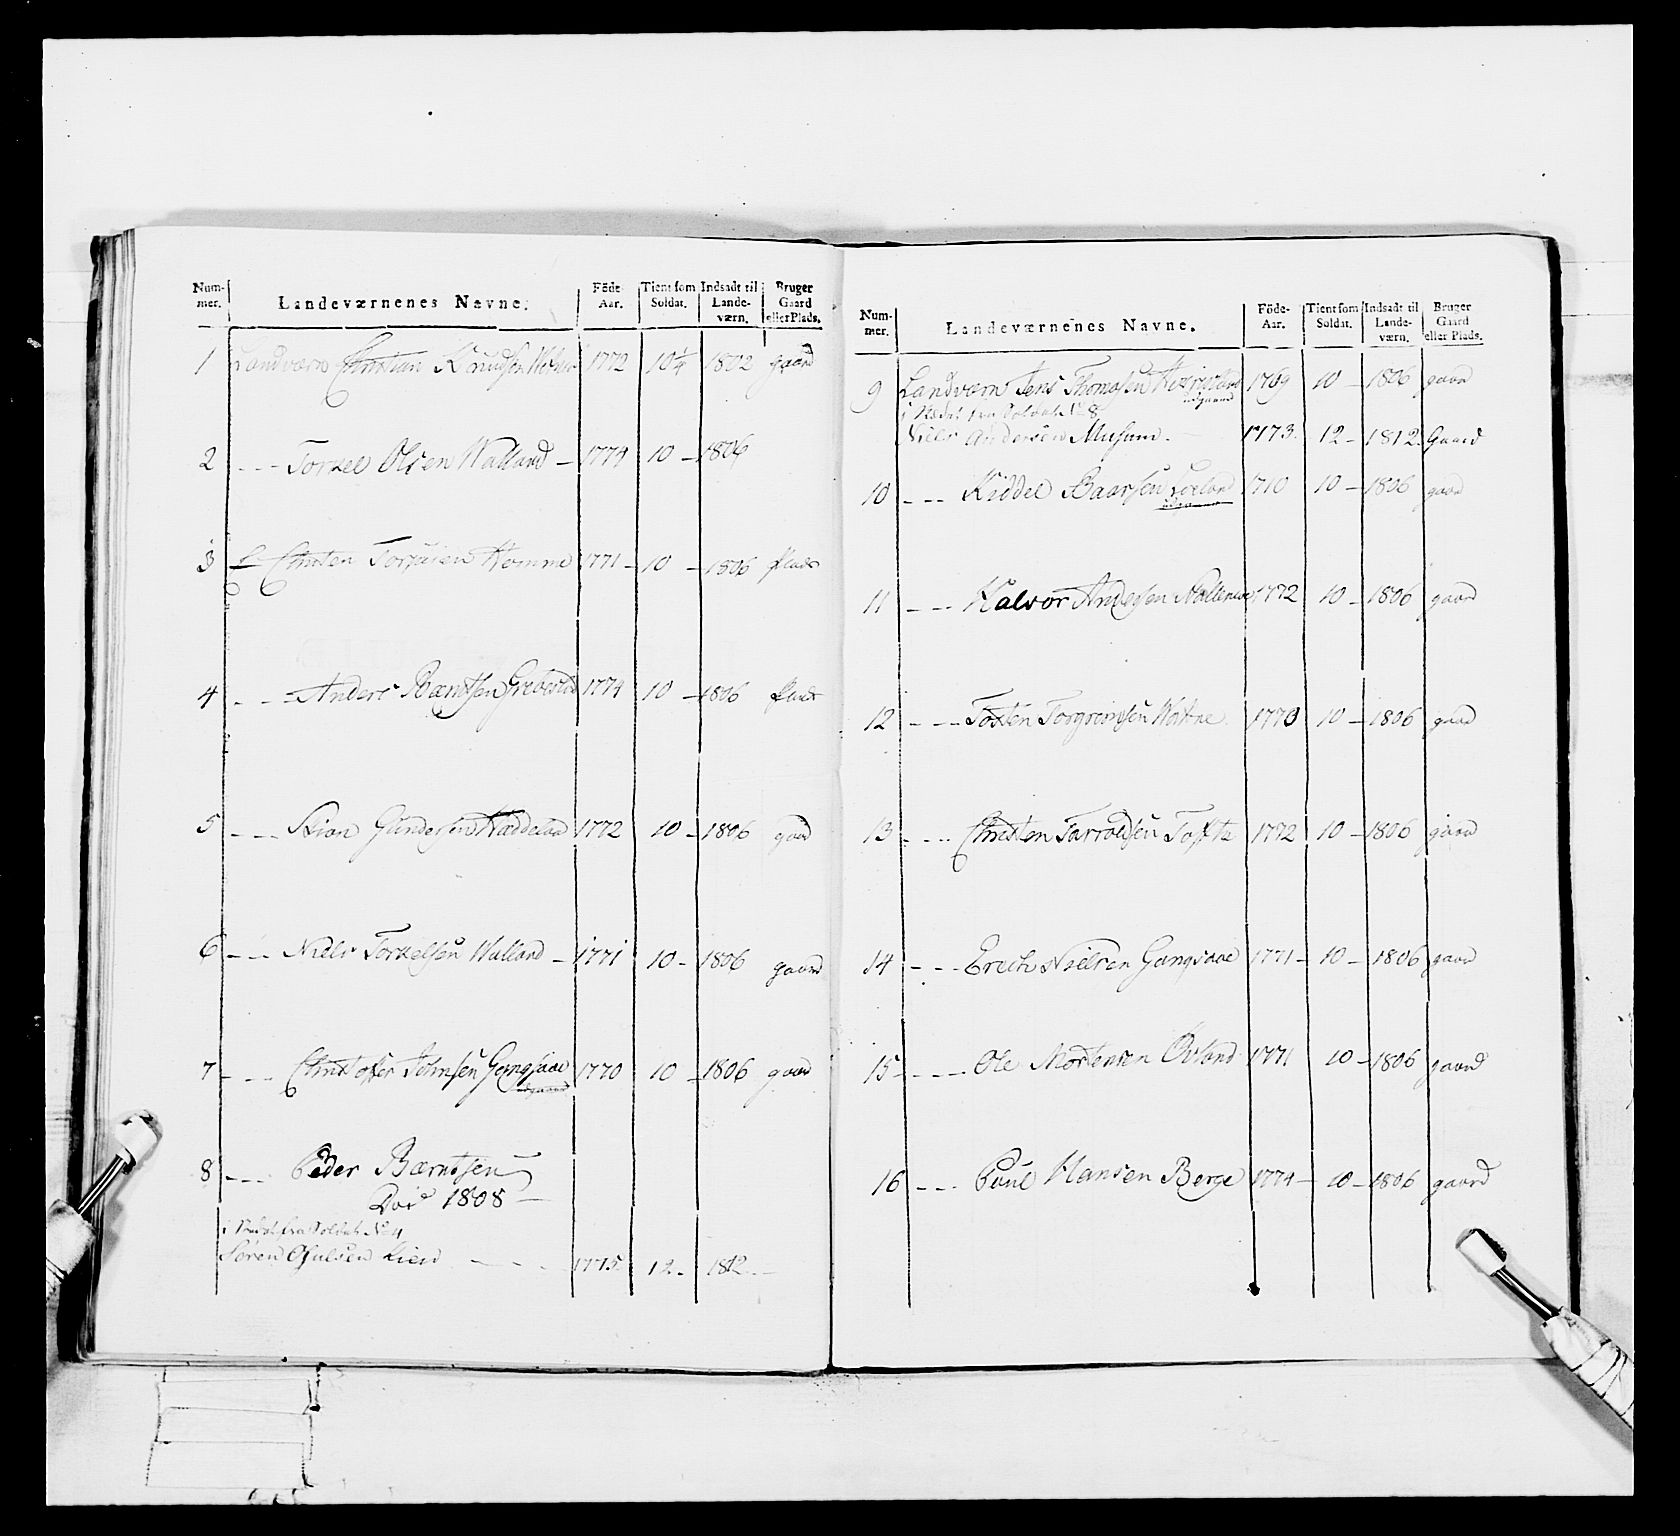 Num-mer. Landeværnenes Nævne. Föde-Aar. Tient som Soldat. Indsadt til Lande-værn. Bruger Gaard eller Plads.
1 Landværn Christian Knudsen 1772 10 1/4 1802 gaard
2 - - - Torkel Olsen Walland - 1774 10 - 1806
3 Christen Homme 1771 - 10 - 1806 Plads
4 - - - Anders Bærntsen Grebestad 1774 10 - 1806 Plads
5 - - - Stian Gundersen 1772 10 - 1806 gaard
6 - - - Niels Torkelsen Walland - 1771 10 - 1806 gaard
7 - - - Christoffer Jensen Gangsaae 1770 10 - 1806 gaard
udgaaed
8 - - - Peder Bærntsen
Död 1808 -
i Stædet fra Soldat No 4
Søren Ofulsen Lien - - - 1775. 12 - 1812 -
Num-mer. Landeværnenes Navne. Föde-Aar. Tient som Soldat. Indsadt til Lande-værn. Bruger Gaard eller Plads.
9 Landværn Jens Thomasen 1769 10 - 1806 gaard
udgaaed
i Stædet fra Soldat No 8
Niels Andersen Musum. 1773. 12 - 1812. Gaard
10 - - - Kiddel Baarsen 1710 10 - 1806 gaard
11 - - - Halvor Andersen 1772 10 - 1806 gaard
12 - - - Tosten Torgrimsen 1770 10 - 1806 gaard
13 - - - Christen Tarraldsen Tofte 1772 10 - 1806 gaard
14 - - - Erich Nielsen Gangsaae 1771 - 10 - 1806 gaard
15 - - - Ole Mortensen Øvland 1771 10 - 1806 gaard
16 - - - Poul Hansen Berge 1774 - 10 - 1806 gaard